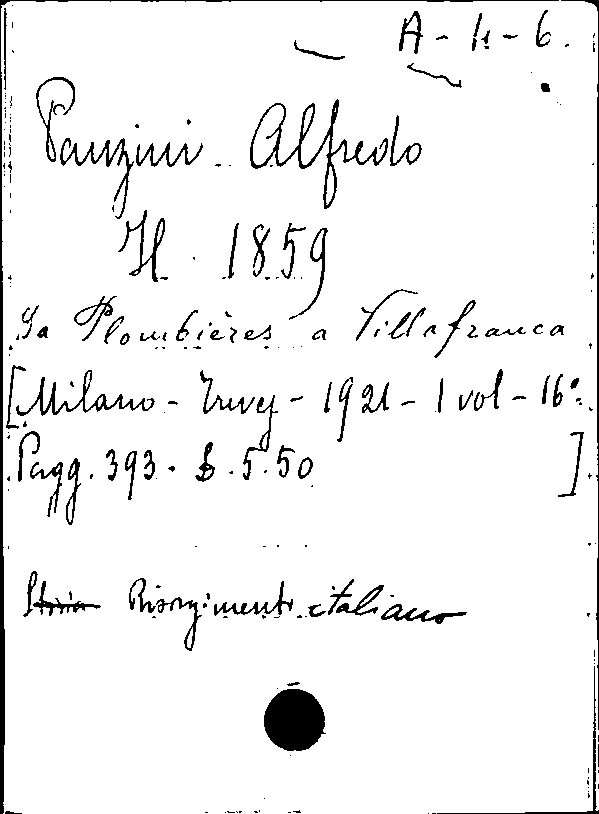 A - 4 - 6.
Panzini Alfredo
Il 1859
Da Plombières a Villafranca
[Milano - Treves - 1921 - 1 vol - 16°.
Pagg. 393. £. 5.50 ]
Storia Risorgimento italiano